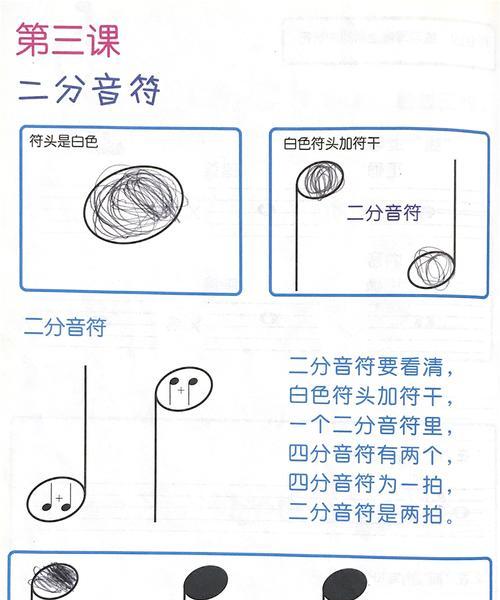 第三课
二分音符
符头是白色
白色符头加符干
二分音符
二分音符
+
+
二分音符要看清，
白色符头加符干，
一个二分音符里，
四分音符有两个，
四分音符为一拍，
二分音符是两拍。